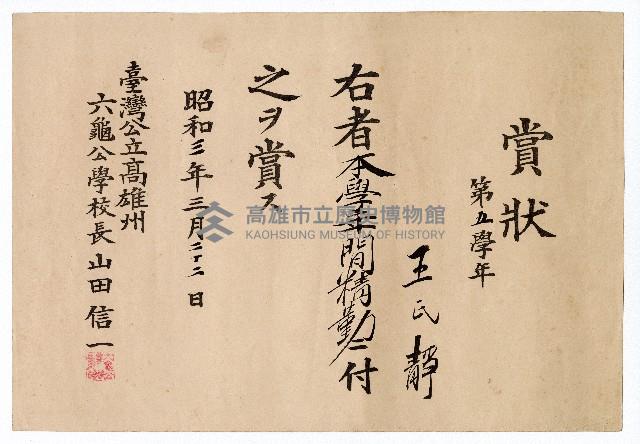 賞狀
第五學年
王氏靜
右者本學年間精勤ニ付
之ヲ賞ス
昭和三年三月二十二日
臺灣公立高雄州
六龜公學校長 山田信一
高雄市立歷史博物館
KAOHSIUNG MUSEUM OF HISTORY